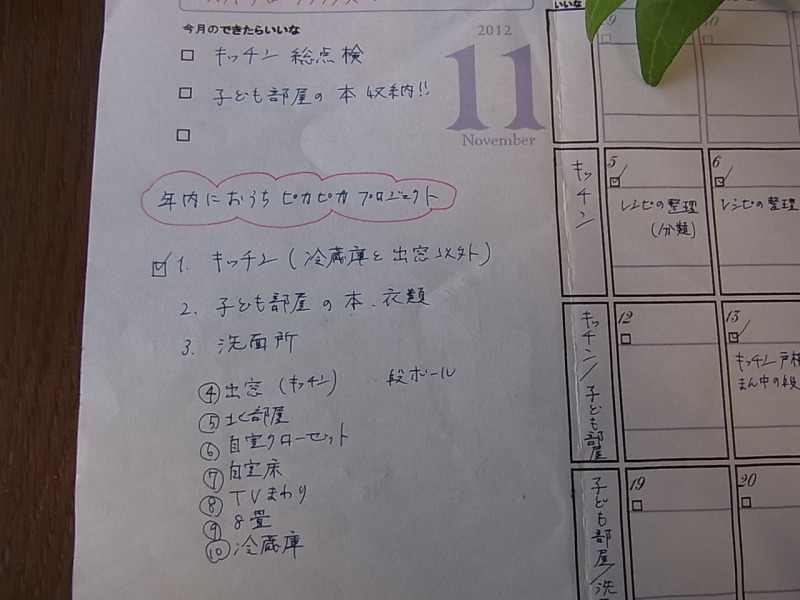 今月のできたらいいな
2012
11
November
キッチン 総点検
子ども部屋の 本 収納!!
年内に おうち ピカピカ プロジェクト
1. キッチン (冷蔵庫と出窓以外)
2. 子ども部屋 の 本、衣類
3. 洗面所
④ 出窓 (キッチン) 段ボール
⑤ 北部屋
⑥ 自室クローゼット
⑦ 自室床
⑧ TVまわり
⑨ 8畳
⑩ 冷蔵庫
いいな
9
10
キッチン
5
レシピの整理
(分類)
6
レシピの整理
キッチン/子ども部屋
12
13
キッチン戸棚
まん中の段
子ども部屋/洗
19
20